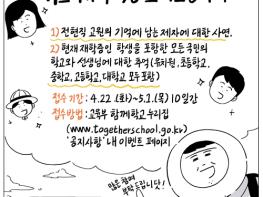 1) 전현직 교원의 기억에 남는 제자에 대한 사연.
2) 현재 재학중인 학생을 포함한 모든 국민의
학교와 선생님에 대한 추억(유치원, 초등학교,
중학교, 고등학교, 대학교 모두 포함)
접수기간: 4.22 (화)~5.1.(목) 10일간
접수방법: 교육부 함께학교 누리집
(www.togetherschool.go.kr)
'공지사항' 내 이벤트 페이지
많은 참여
부탁드립니닷!